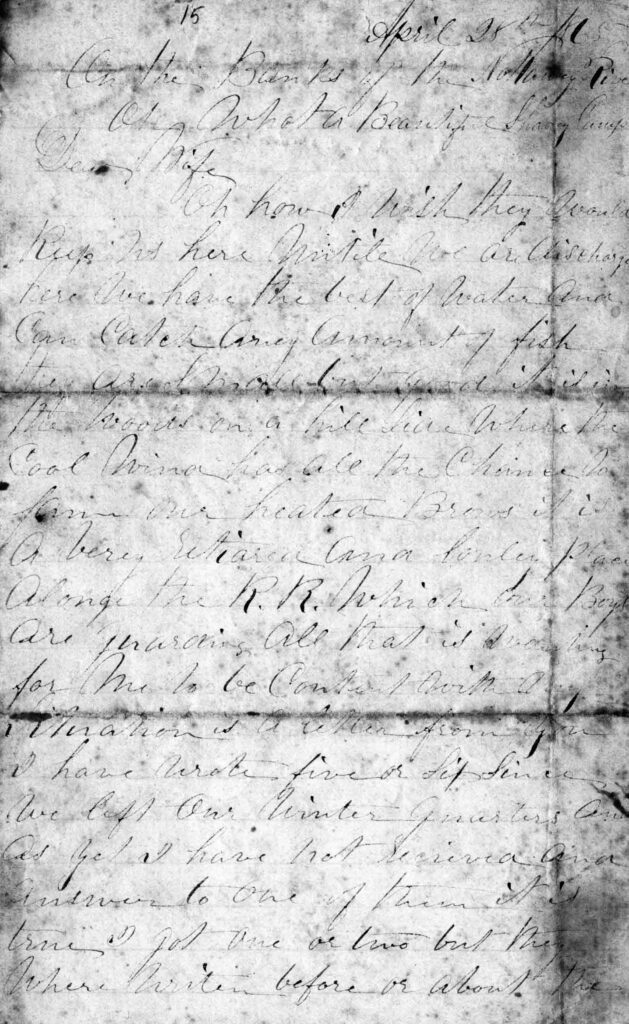 15
April 28th
On the Banks of the Nottoway
Oh What a Beautiful Camp
Dear Wife
Oh how I Wish they Would
Keep us here Untile We are discharge
here We have the best of Water and
Can Catch Aney Amount of fish
they are but good it is in
the Woods on a hill Side Where the
Cool Wind has all the Chance to
fann our heated Brows it is
A verey Retiared and lonley place
Alonge the R. R. Which our Boys
are guarding All that is
for Me to be Content With My
Situation is a letter from you
I have Wrote five or Six Since
We left Our Winter quarters and
as yet I have not received and
Answer to One of them it is
true I got One or two but they
Where Writen before or about the